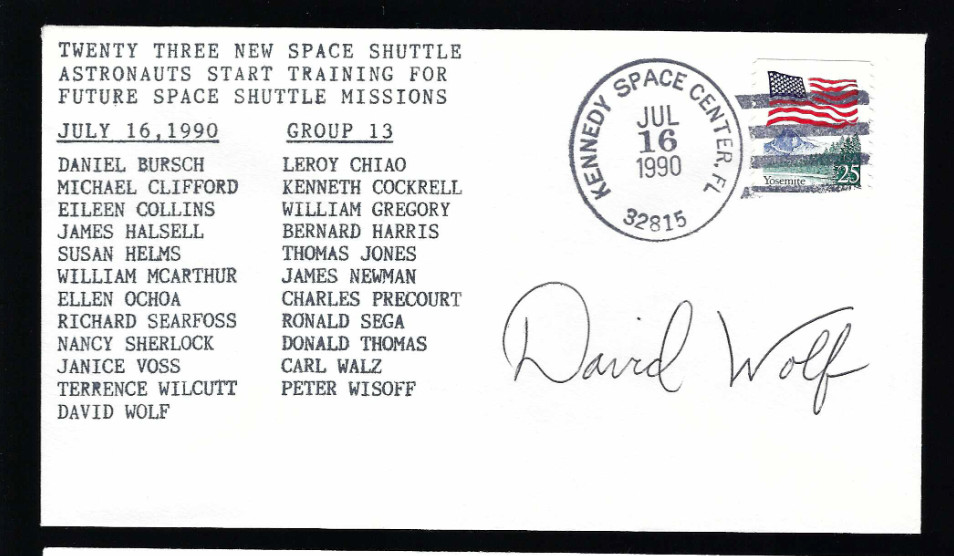 TWENTY THREE NEW SPACE SHUTTLE
ASTRONAUTS START TRAINING FOR
FUTURE SPACE SHUTTLE MISSIONS
JULY 16,1990 GROUP 13
DANIEL BURSCH LEROY CHIAO
MICHAEL CLIFFORD KENNETH COCKRELL
EILEEN COLLINS WILLIAM GREGORY
JAMES HALSELL BERNARD HARRIS
SUSAN HELMS THOMAS JONES
WILLIAM MCARTHUR JAMES NEWMAN
ELLEN OCHOA CHARLES PRECOURT
RICHARD SEARFOSS RONALD SEGA
NANCY SHERLOCK DONALD THOMAS
JANICE VOSS CARL WALZ
TERRENCE WILCUTT PETER WISOFF
DAVID WOLF
KENNEDY SPACE CENTER, FL
JUL
16
1990
32815
Yosemite 25
David Wolf